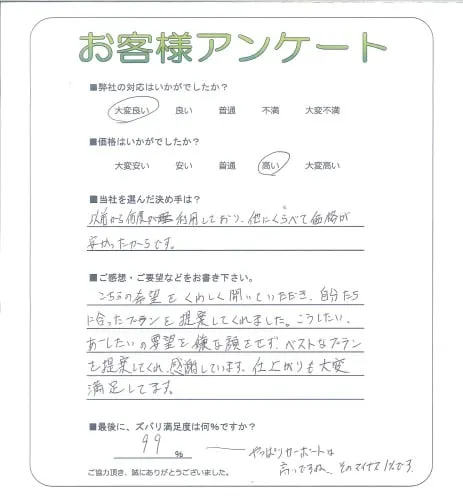 お客様アンケート
■弊社の対応はいかがでしたか？
大変良い 良い 普通 不満 大変不満
■価格はいかがでしたか？
大変安い 安い 普通 高い 大変高い
■当社を選んだ決め手は？
以前から何度か利用しており、他にくらべて価格が
安かったからです。
■ご感想・ご要望などをお書き下さい。
こちらの希望をくわしく聞いていただき、自分たち
に合ったプランを提案してくれました。こうしたい、
あーしたいの要望を嫌な顔をせず、ベストなプラン
を提案してくれ、感謝しています。仕上がりも大変
満足してます。
■最後に、ズバリ満足度は何%ですか？
99 %
やっぱりカーポートは
高いですね、そのマイナス1%です。
ご協力頂き、誠にありがとうございました。